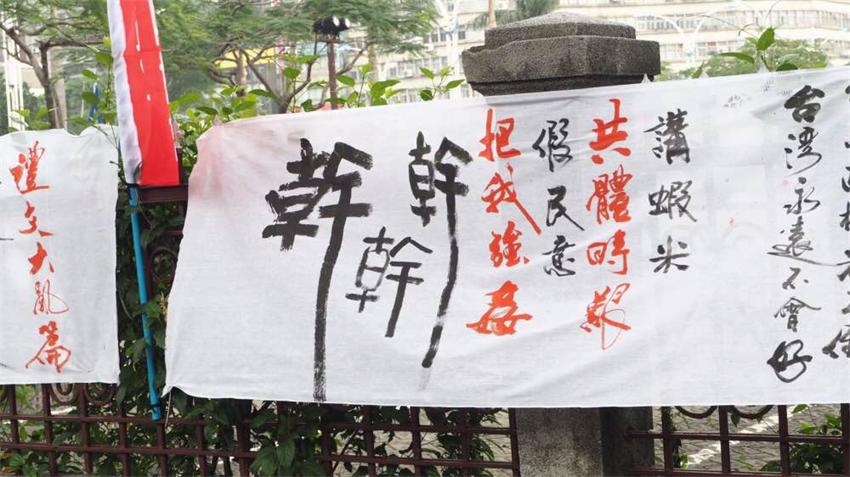 台灣永遠不會好
講蝦米
共體時艱
假民意
把我強姦
幹
幹
幹
禮文大亂篇